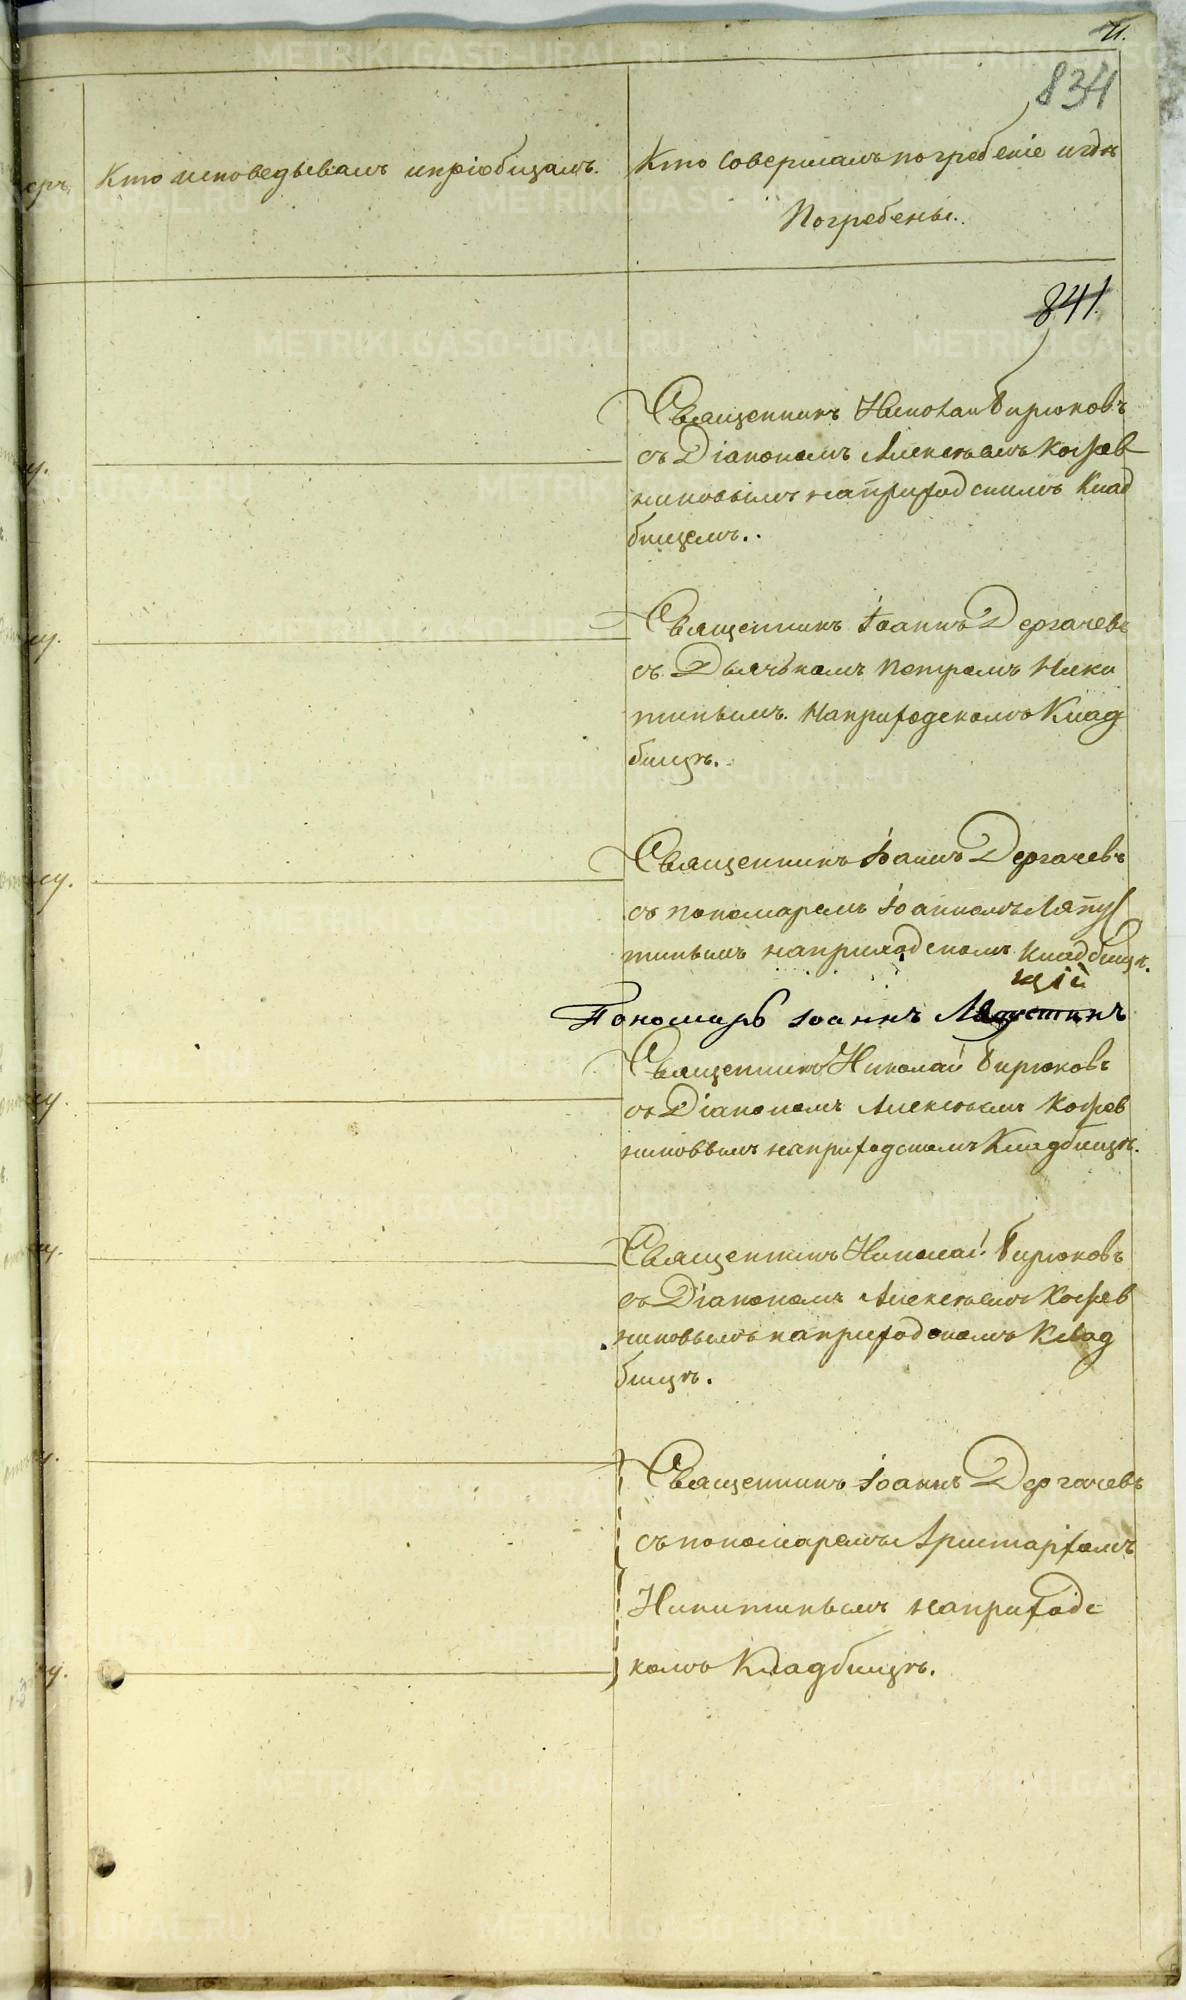 11.
834
Кто исповедывалъ и пріобщалъ.
Кто совершалъ погребеніе и гдѣ
Погребены.
841.
Священникъ Николай Бирюковъ
съ Діакономъ Алексѣемъ Кожев
никовымъ на приходскимъ Клад
бищемъ..
Священникъ Іоаннъ Дергачевъ
съ Дьячькомъ Петромъ Ники
тинымъ. На приходскомъ Клад
бищѣ.
Священникъ Іоаннъ Дергачевъ
съ пономаремъ Іоанномъ Ляпус
тинымъ на приходскомъ Кладбищѣ.
Пономарь Іоаннъ Ляпустинъ
Священникъ Николай Бирюковъ
съ Діакономъ Алексѣемъ Кожев
никовымъ на приходскомъ Кладбищѣ.
Священникъ Николай Бирюковъ
съ Діакономъ Алексѣемъ Кожев
никовымъ на приходскомъ Клад
бищѣ.
Священникъ Іоаннъ Дергачевъ
съ пономаремъ Аристархомъ
Никитинымъ на приходс
комъ Кладбищѣ.
METRIKI.GASO-URAL.RU